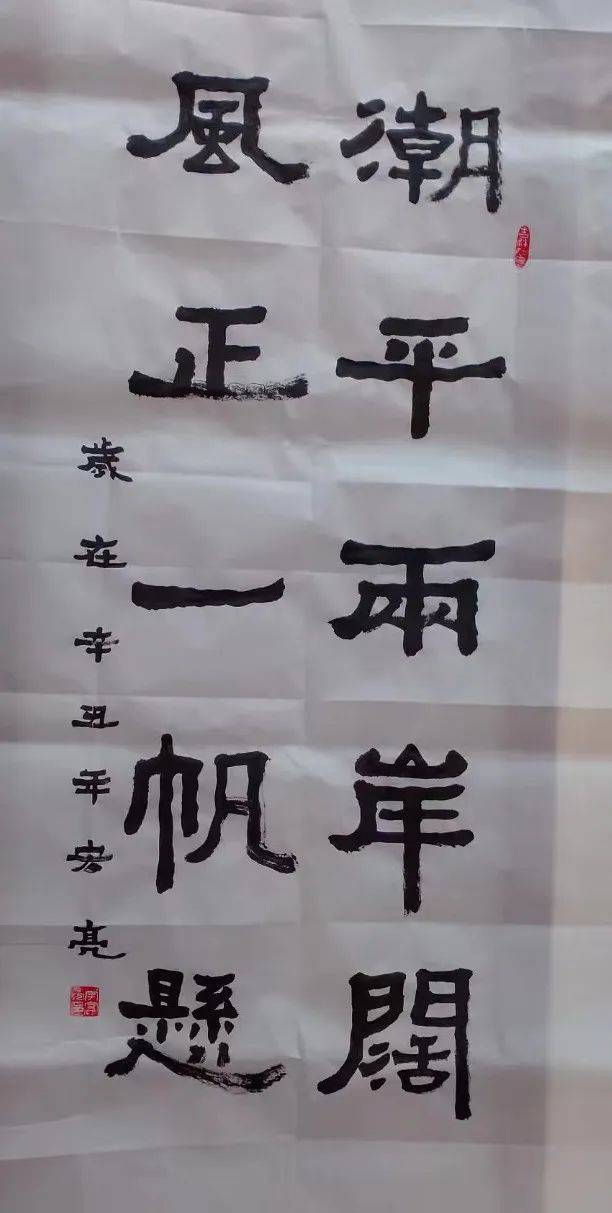 潮平兩岸闊
風正一帆懸
歲在辛丑年宏亮